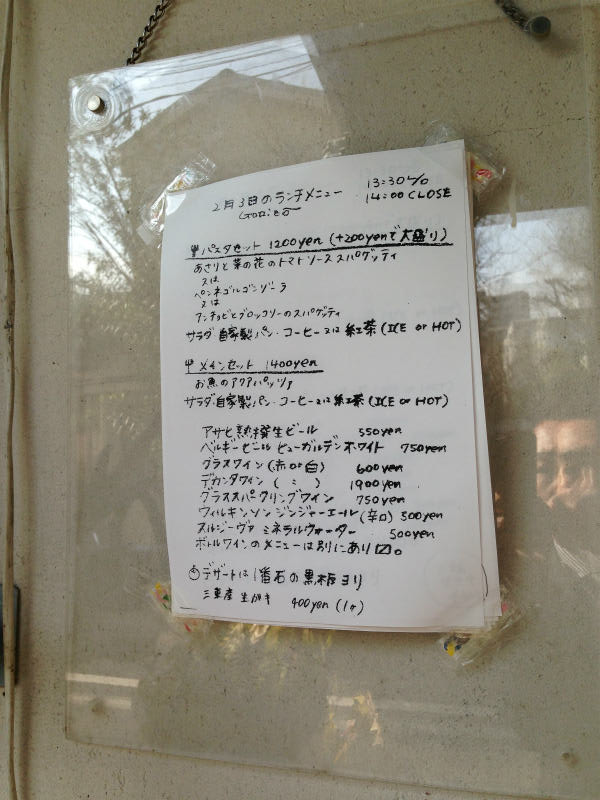 2月3日のランチメニュー
13:30 L/O
14:00 CLOSE
パスタセット 1200yen (+200yenで大盛り)
あさりと菜の花のトマトソーススパゲッティ
又は
ペンネゴルゴンゾーラ
又は
アンチョビとブロッコリーのスパゲッティ
サラダ・自家製パン・コーヒー又は紅茶 (ICE or HOT)
メインセット 1400yen
お魚のアクアパッツァ
サラダ・自家製パン・コーヒー又は紅茶 (ICE or HOT)
アサヒ熟撰生ビール 550yen
ベルギービール ヒューガルデンホワイト 750yen
グラスワイン (赤or白) 600yen
デカンタワイン ( 〃 ) 1900yen
グラススパークリングワイン 750yen
ウィルキンソン ジンジャーエール (辛口) 500yen
スルジーヴァ ミネラルウォーター 500yen
ボトルワインのメニューは別にあり〼。
デザートは1番右の黒板ヨリ
三重産 生ガキ 400yen (1ヶ)